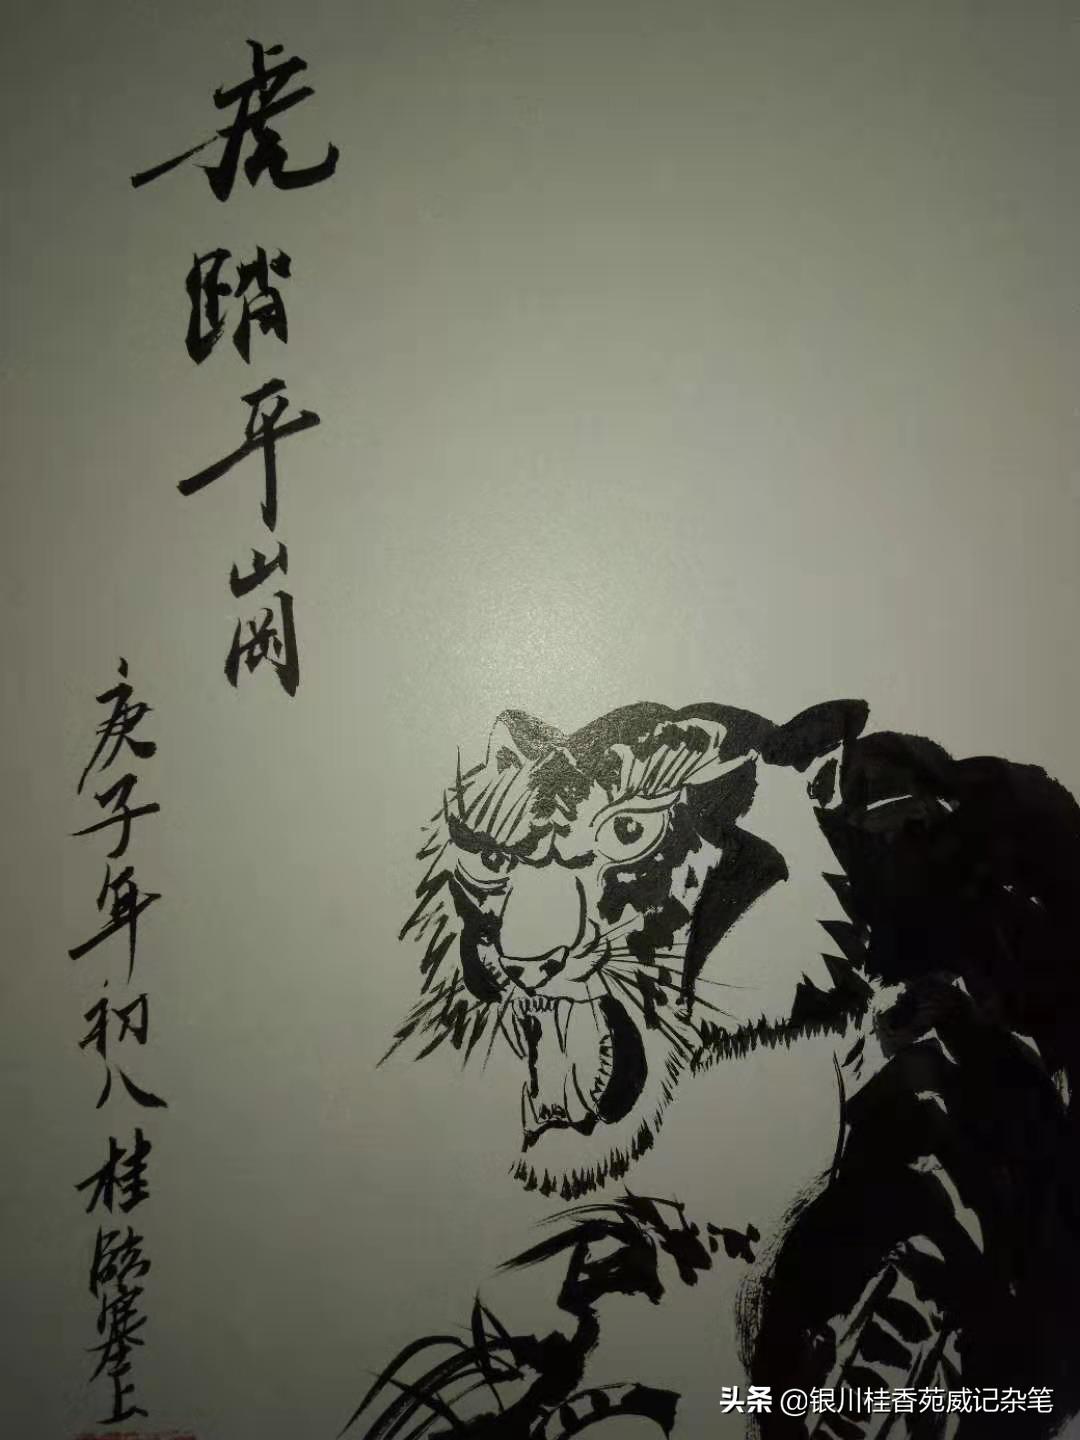 虎踏平崗
庚子年初八桂臨塞上
头条 @银川桂香苑威记杂笔